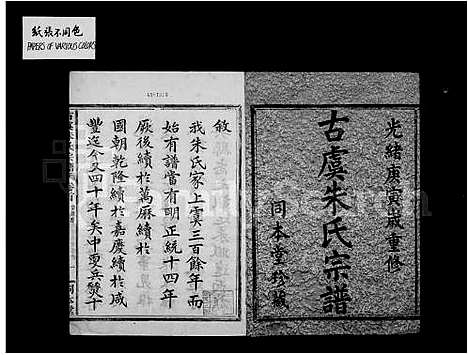 紙張不同色
PAPERS OF VARIOUS COLORS
光緒庚寅歲重修
古虞朱氏宗譜
同本堂珍藏
敘
我朱氏家上虞三百餘年而
始有譜嘗有明正統十四年
厥後續於萬厤續於
國朝乾隆續於嘉慶續於咸
豐迄今又四十年矣中更兵燹十